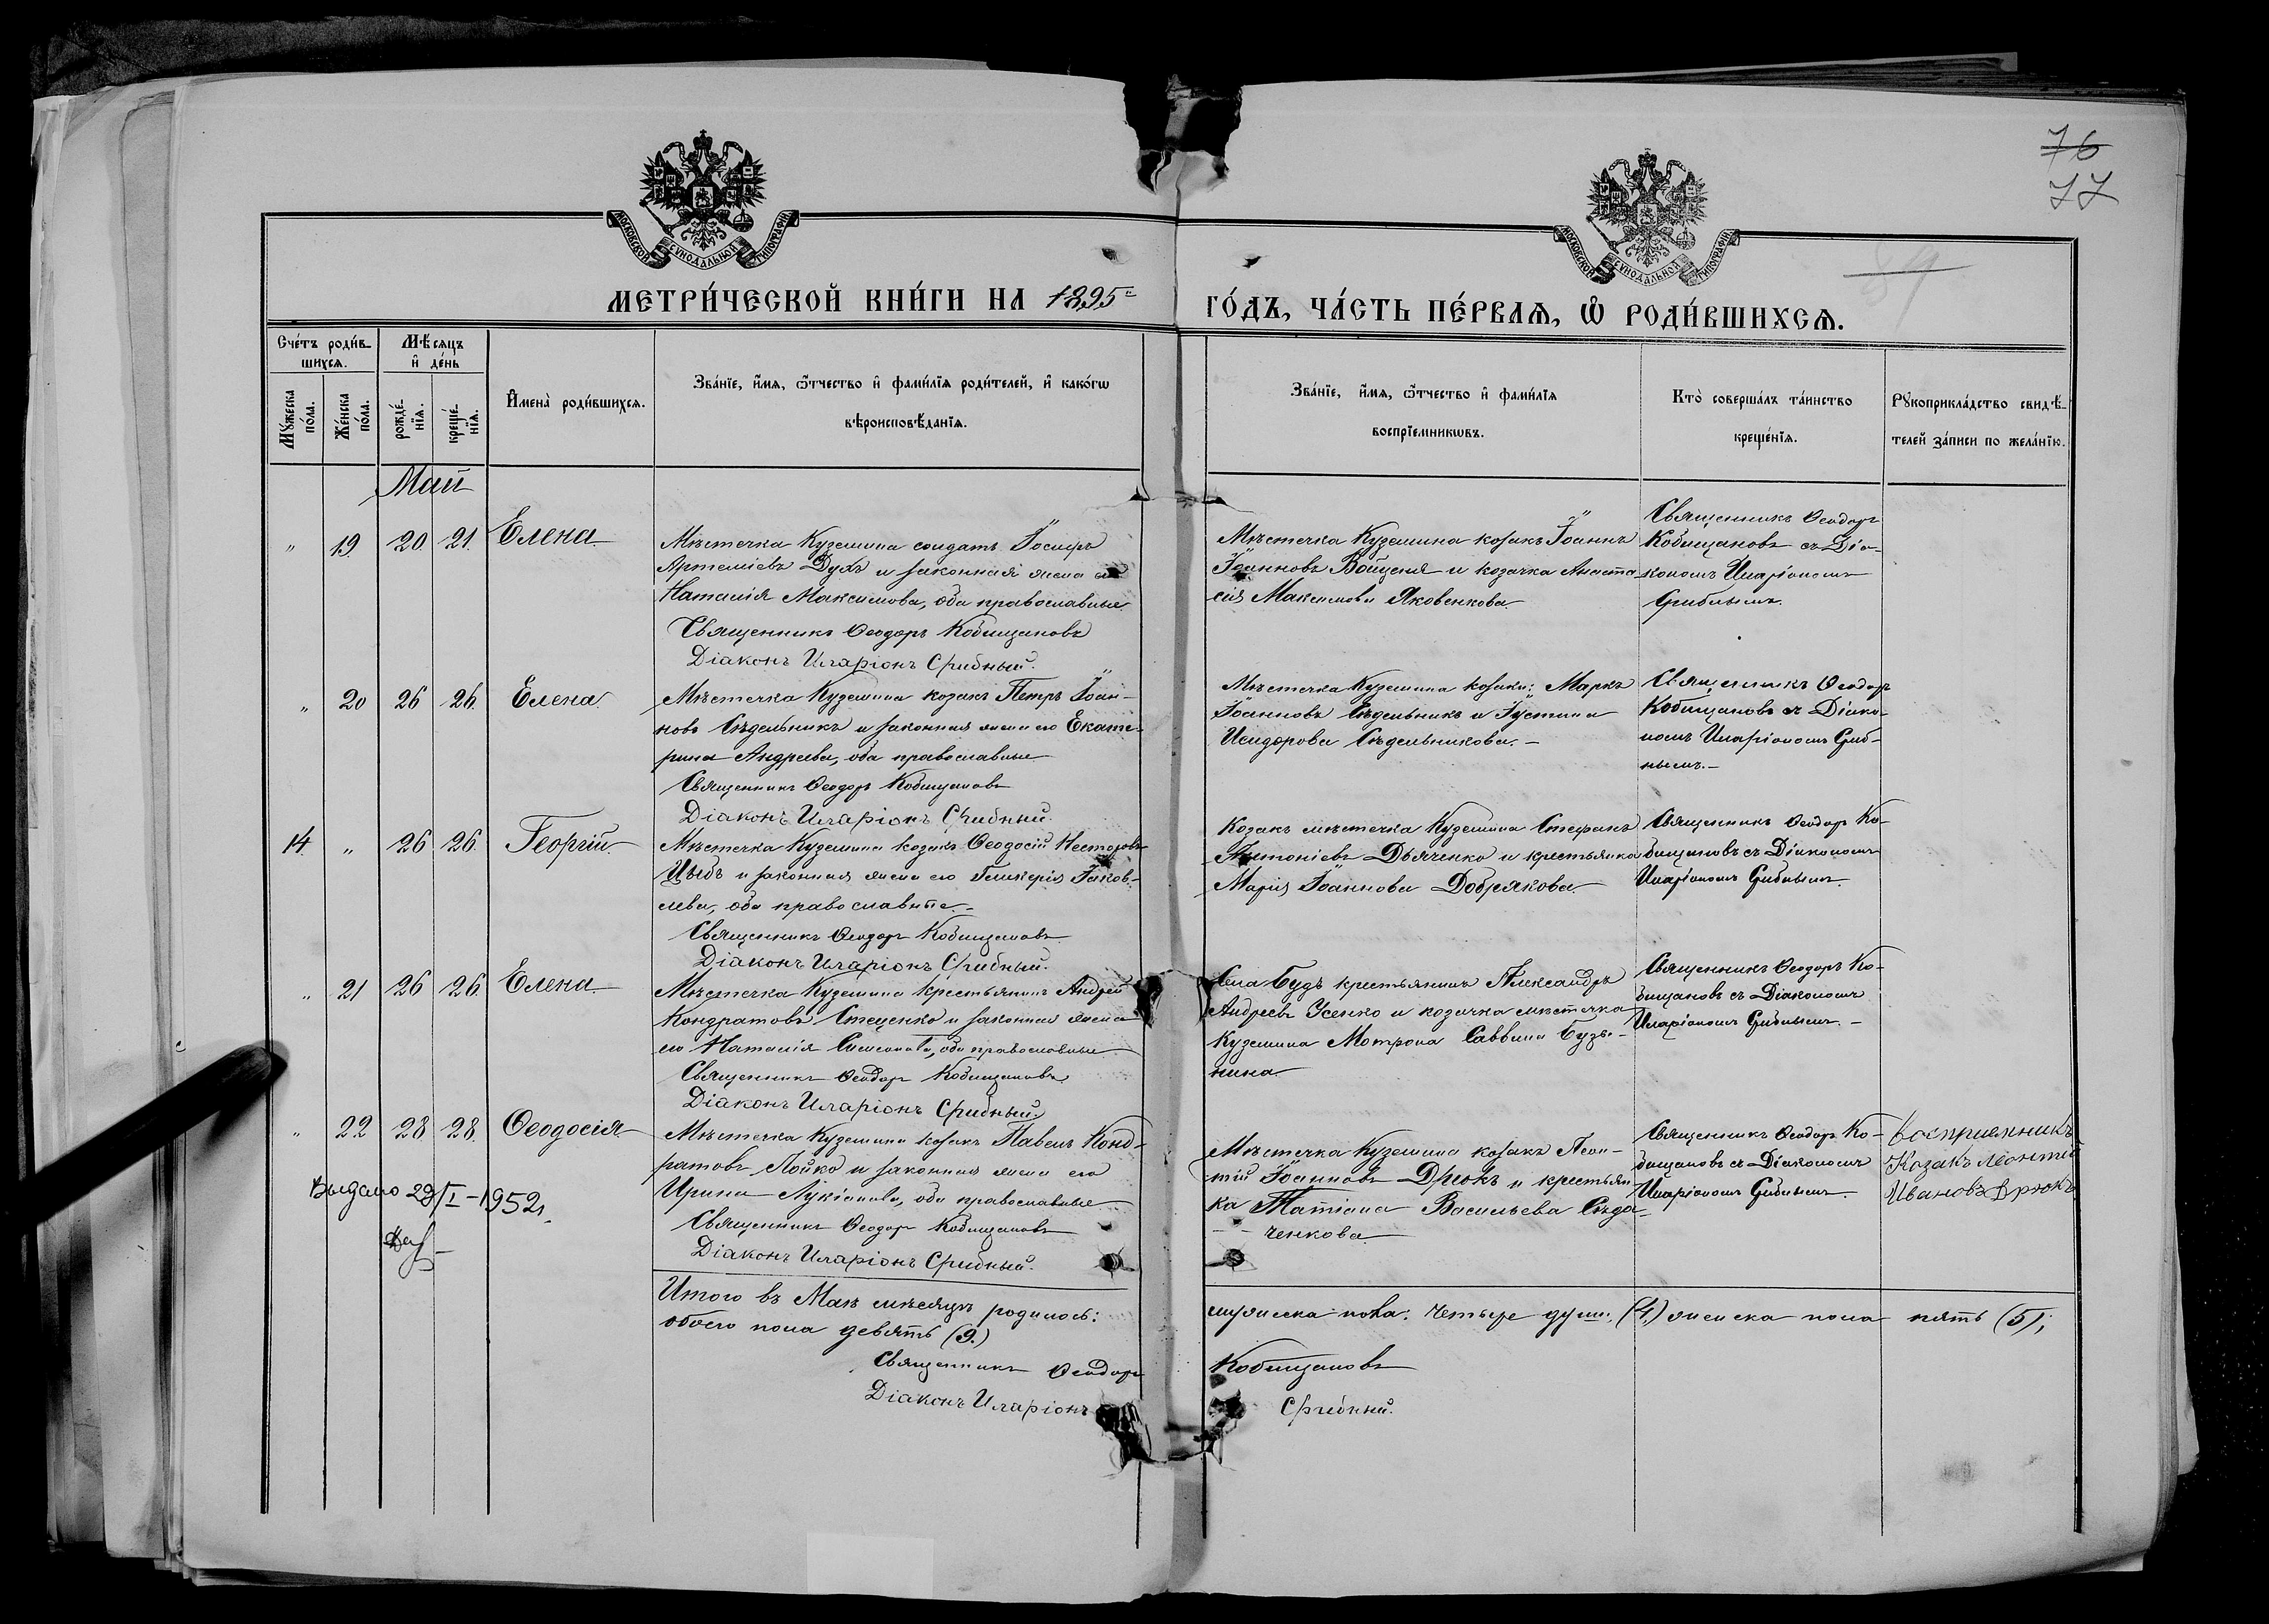 76
77
МОСКОВСКОЙ СѴНОДАЛЬНОЙ ТИПОГРАФІИ
МОСКОВСКОЙ СѴНОДАЛЬНОЙ ТИПОГРАФІИ
МЕТРИ́ЧЕСКОЙ КНИ́ГИ НА 1895й
ГО́ДЪ, ЧА́СТЬ ПЕ́РВАѦ, Ѡ҆ РОДИ́ВШИХСѦ.
Сче́тъ роди́в-
шихсѧ.
Мѣ́сѧцъ
и҆ де́нь
Мꙋ́жеска по́ла.
Же́нска по́ла.
рожде́-нїѧ.
креще́-нїѧ.
И҆мена̀ роди́вшихсѧ.
Зва́нїе, и҆́мѧ, ѻ҆́тчество и҆ фами́лїѧ роди́телей, и҆ како́гѡ
вѣроисповѣ́данїѧ.
Зва́нїе, и҆́мѧ, ѻ҆́тчество и҆ фами́лїѧ
воспрїемникѡвъ.
Кто̀ соверша́лъ та́инство
креще́нїѧ.
Рꙋкоприкла́дство свидѣ́-
телей за́писи по жела́нїю.
Май
" 19 20 21 Елена
Мѣстечка Куземина солдатъ Іосифъ
Артеміевъ Духъ и законная жена его
Наталія Максимова, оба православные
Священникъ Ѳеодоръ Кобищановъ
Діаконъ Иларіонъ Срибный.
Мѣстечка Куземина козакъ Іоаннъ
Іоанновъ и козачка Анаста
сія Максимова Яковенкова
Священникъ Ѳеодоръ
Кобищановъ съ Діа-
кономъ Иларіономъ
Срибнымъ.
" 20 26 26 Елена
Мѣстечка Куземина козакъ Петръ Іоан-
новъ Сѣдельникъ и законная жена его Екате-
рина Андреева, оба православные
Священникъ Ѳеодоръ Кобищановъ
Діаконъ Иларіонъ Срибный.
Мѣстечка Куземина козаки: Маркъ
Іоанновъ Сѣдельникъ и Іустина
Исидорова Сѣдельникова. -
Священникъ Ѳеодоръ
Кобищановъ съ Діако-
номъ Иларіономъ Сриб-
нымъ. -
14 " 26 26 Георгій
Мѣстечка Куземина козакъ Ѳеодосій Несторовъ
Цыбъ и законная жена его Гликерія Іаков-
лева, оба православные. -
Священникъ Ѳеодоръ Кобищановъ
Діаконъ Иларіонъ Срибный.
Козакъ мѣстечка Куземина Стефанъ
Антоніевъ Дьяченко и крестьянка
Марія Іоаннова Добрякова
Священникъ Ѳеодоръ Ко-
бищановъ съ Діакономъ
Иларіономъ Срибнымъ.
" 21 26 26 Елена
Мѣстечка Куземина крестьянинъ Андрей
Кондратовъ Стеценко и законная жена
его Наталія Симеонова, оба православные
Священникъ Ѳеодоръ Кобищановъ
Діаконъ Иларіонъ Срибный.
Села Будъ крестьянинъ Александръ
Андреевъ Усенко и козачка мѣстечка
Куземина Мотрона Саввина Бузы-
нина
Священникъ Ѳеодоръ Ко-
бищановъ съ Діакономъ
Иларіономъ Срибнымъ. -
" 22 28 28 Ѳеодосія
Мѣстечка Куземина козакъ Павелъ Конд-
ратовъ Лойко и законная жена его
Ирина Лукіанова, оба православные
Священникъ Ѳеодоръ Кобищановъ
Діаконъ Иларіонъ Срибный.
Мѣстечка Куземина козакъ Леон-
тій Іоанновъ Дрюкъ и крестьян
ка Татіана Васильева Сѣда-
ченкова
Священникъ Ѳеодоръ Ко-
бищановъ съ Діакономъ
Иларіономъ Срибнымъ.
Восприемникъ
Козакъ Леонтій
Ивановъ Дрюкъ
Выдано 29/I-1952г.
Итого въ Маѣ мѣсяцѣ родилось:
обоего пола девять (9.)
Священникъ Ѳеодоръ
Діаконъ Иларіонъ
мужеска пола: четыре души, (4,) женска пола пять (5),
Кобищановъ
Срибный.